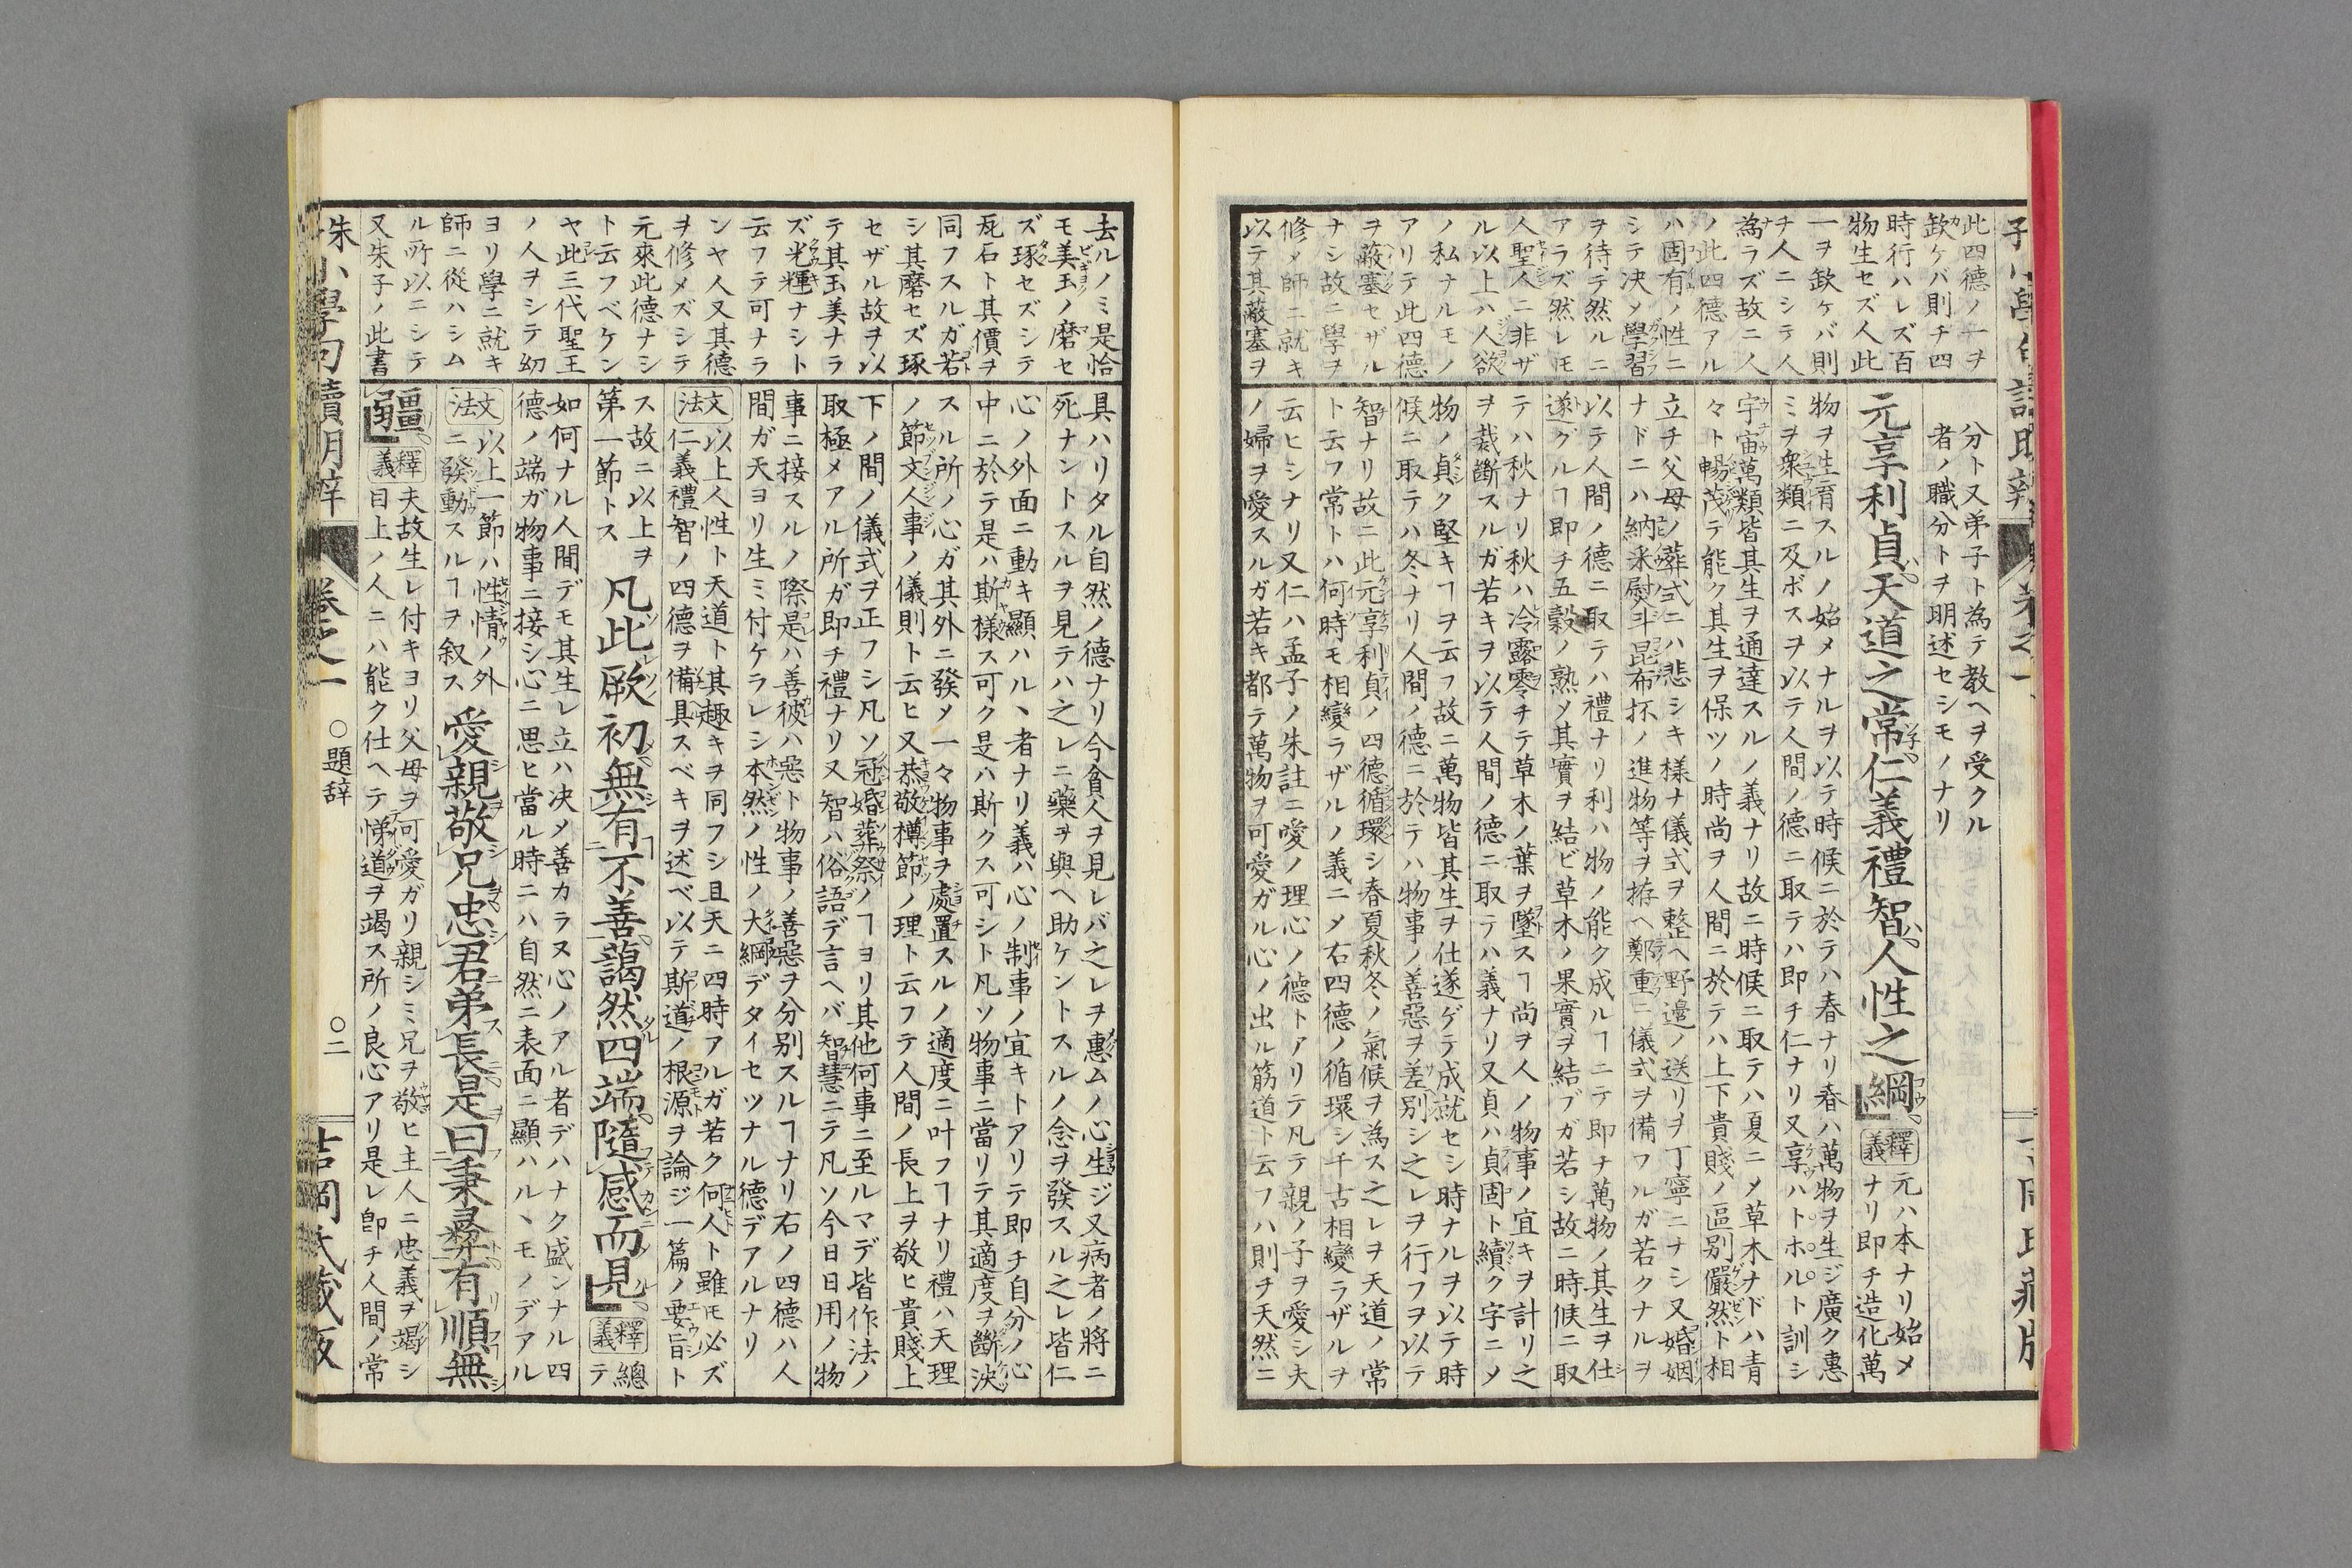 此四德ノ一ヲ
缼ケバ則チ四
時行ハレズ百
物生セズ人此
一ヲ缼ケバ則
チ人ニシテ人
為ラズ故ニ人
ノ此四德アル
ハ固有ノ性ニ
シテ决メ學習
ヲ待テ然ルニ
アラズ然レモ
人聖人ニ非ザ
ル以上ハ人欲
ノ私ナルモノ
アリテ此四德
ヲ蔽塞セザル
ナシ故ニ學ヲ
修メ師ニ就キ
以テ其蔽塞ヲ
分ト又弟子ト為テ教ヘヲ受クル
者ノ職分トヲ明述セシモノナリ
元亨利貞天道之常仁義禮智人性之綱
釋義 元ハ本ナリ始メ
ナリ即チ造化萬
物ヲ生育スルノ始メナルヲ以テ時候ニ於テハ春ナリ春ハ萬物ヲ生ジ廣ク惠
ミヲ衆類ニ及ボスヲ以テ人間ノ德ニ取テハ即チ仁ナリ又享ハトホルト訓シ
宇宙萬類皆其生ヲ通達スルノ義ナリ故ニ時候ニ取テハ夏ニメ草木ナドハ青
々ト暢茂テ能ク其生ヲ保ツノ時尚ヲ人間ニ於テハ上下貴賤ノ區别儼然ト相
立チ父母ノ葬式ニハ悲シキ樣ナ儀式ヲ整ヘ野邉ノ送リヲ丁寧ニナシ又婚姻
ナドニハ納釆慰斗昆布抔ノ進物等ヲ拵ヘ鄭重ニ儀式ヲ備フルガ若クナルヲ
以テ人間ノ德ニ取テハ禮ナリ利ハ物ノ能ク成ルヿニテ即チ萬物ノ其生ヲ仕
遂グルヿ即チ五穀ノ熟メ其實ヲ結ビ草木ノ果實ヲ結ブガ若シ故ニ時候ニ取
テハ秋ナリ秋ハ冷露零チテ草木ノ葉ヲ墜スヿ尚ヲ人ノ物事ノ宜キヲ計リ之
ヲ裁斷スルガ若キヲ以テ人間ノ德ニ取テハ義ナリ又貞ハ貞固ト續ク字ニメ
物ノ貞ク堅キヿヲ云フ故ニ萬物皆其生ヲ仕遂ゲテ成就セシ時ナルヲ以テ時
候ニ取テハ冬ナリ人間ノ德ニ於テハ物事ノ善惡ヲ差別シ之レヲ行フヲ以テ
智ナリ故ニ此元享利貞ノ四德循環シ春夏秋冬ノ氣候ヲ為ス之レヲ天道ノ常
ト云フ常トハ何時モ相變ラザルノ義ニメ右四德ノ循環シ千古相變ラザルヲ
云ヒシナリ又仁ハ孟子ノ朱註ニ噯ノ理心ノ德トアリテ凡テ親ノ子ヲ愛シ夫
ノ婦ヲ愛スルガ若キ都テ萬物ヲ可愛ガル心ノ出ル筋道ト云フハ則ヲ天然ニ
去ルノミ是恰
モ美玉ノ磨セ
ズ琢セズシテ
瓦石ト其價ヲ
同フスルガ若
シ其磨セズ琢
セザル故ヲ以
テ其玉美ナラ
ズ光輝ナシト
云フテ可ナラ
ンヤ人又其德
ヲ修メズシテ
元來此德ナシ
ト云フベケン
ヤ此三代聖王
ノ人ヲシテ幼
ヨリ學ニ就キ
師ニ從ハシム
ル所以ニシテ
又朱子ノ此書
具ハリタル自然ノ德ナリ今貪人ヲ見レバ之レヲ惠ムノ心生ジ又病者ノ將ニ
死ナントスルヲ見テハ之レニ藥ヲ與ヘ助ケントスルノ念ヲ發スル之レ皆仁
心ノ外面ニ動キ顯ハルヽ者ナリ義ハ心ノ制事ノ宜キトアリテ即チ自分ノ心
中ニ於テ是ハ斯樣ス可ク是ハ斯クス可シト凡ソ物事ニ當リテ其適度ヲ斷决
スル所ノ心ガ其外ニ發メ一々物事ヲ處置スルノ適度ニ叶フヿナリ禮ハ天理
ノ節文人事ノ儀則ト云ヒ又恭敬樽節ノ理ト云フテ人間ノ長上ヲ敬ヒ貴賤上
下ノ間ノ儀式ヲ正フシ凡ソ冠婚葬祭ノヿヨリ其他何事ニ至ルマデ皆作法ノ
取極メアル所ガ即チ禮ナリ又智ハ俗語デ言ヘバ智慧ニテ凡ソ今日日用ノ物
事ニ接スルノ際是ハ善彼ハ惡ト物事ノ善惡ヲ分别スルヿナリ右ノ四德ハ人
間ガ天ヨリ生ミ付ケラレシ本然ノ性ノ大綱デタイセツナル德デアルナリ
文法 以上人性ト天道ト其趣キヲ同フシ且天ニ四時アルガ若ク何人ト雖モ必ズ
仁義禮智ノ四德ヲ備具スベキヲ述ベ以テ斯道ノ根源ヲ論ジ一篇ノ要旨ト
ス故ニ以上ヲ
第一節トス
凡此厥初無有不善藹然四端隨感而見
釋義 總
テ
如何ナル人間デモ其生レ立ハ决メ善カラヌ心ノアル者デハナク盛ンナル四
德ノ端ガ物事ニ接シ心ニ思ヒ當ル時ニハ自然ニ表面ニ顯ハルヽモノデアル
文法 以上一節ハ性情ノ外
ニ發動スルヿヲ叙ス
愛親敬兄忠君弟長是曰秉彛有順無
彊
釋義 夫故生レ付キヨリ父母ヲ可愛ガリ親シミ兄ヲ敬ヒ主人ニ忠義ヲ竭シ
目上ノ人ニハ能ク仕ヘテ悌道ヲ竭ス所ノ良心アリ是レ卽チ人間ノ常
朱小學句讀明辞 卷之一 ○題辞 ○二 吉岡氏藏版